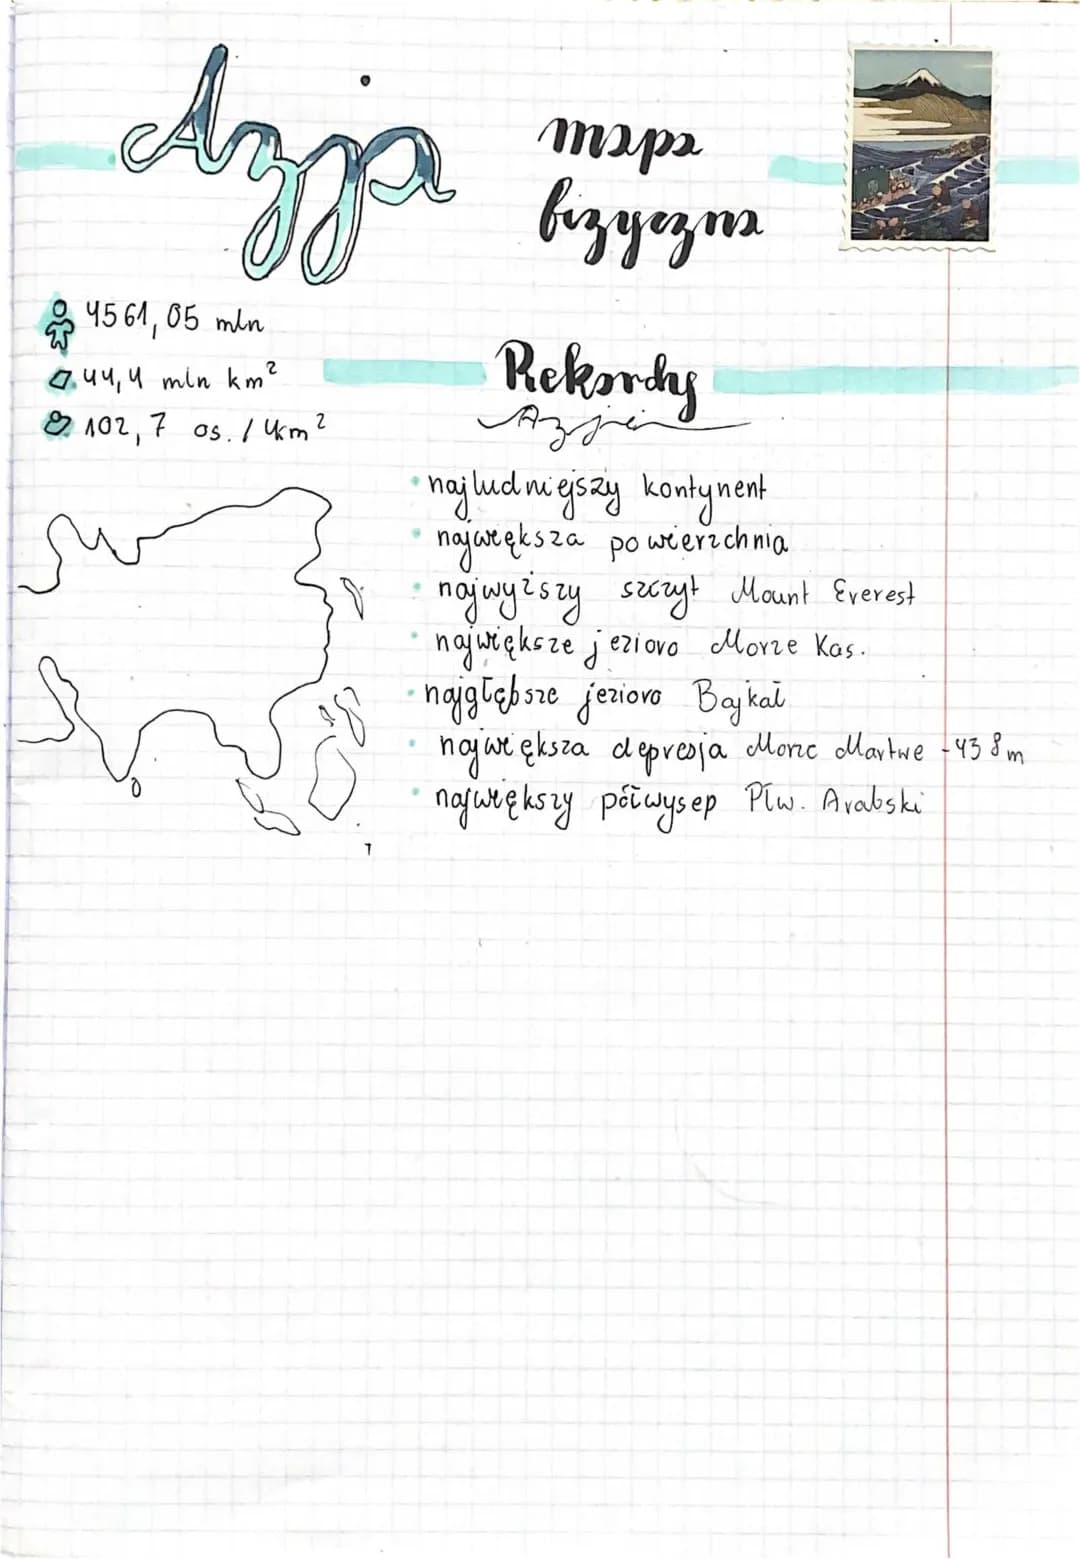 Azja
mapa
fizyczna
4561,05 mln
44,4 mln km²
102,7 os./km²
Rekordy
Azji
• najludniejszy kontynent
• największa powierzchnia
• najwyższy szczyt Mount Everest
• największe jezioro Morze Kas.
• najgłębsze jezioro Bajkał
• największa depresja Morze Martwe -438m
• największy półwysep Płw. Arabski